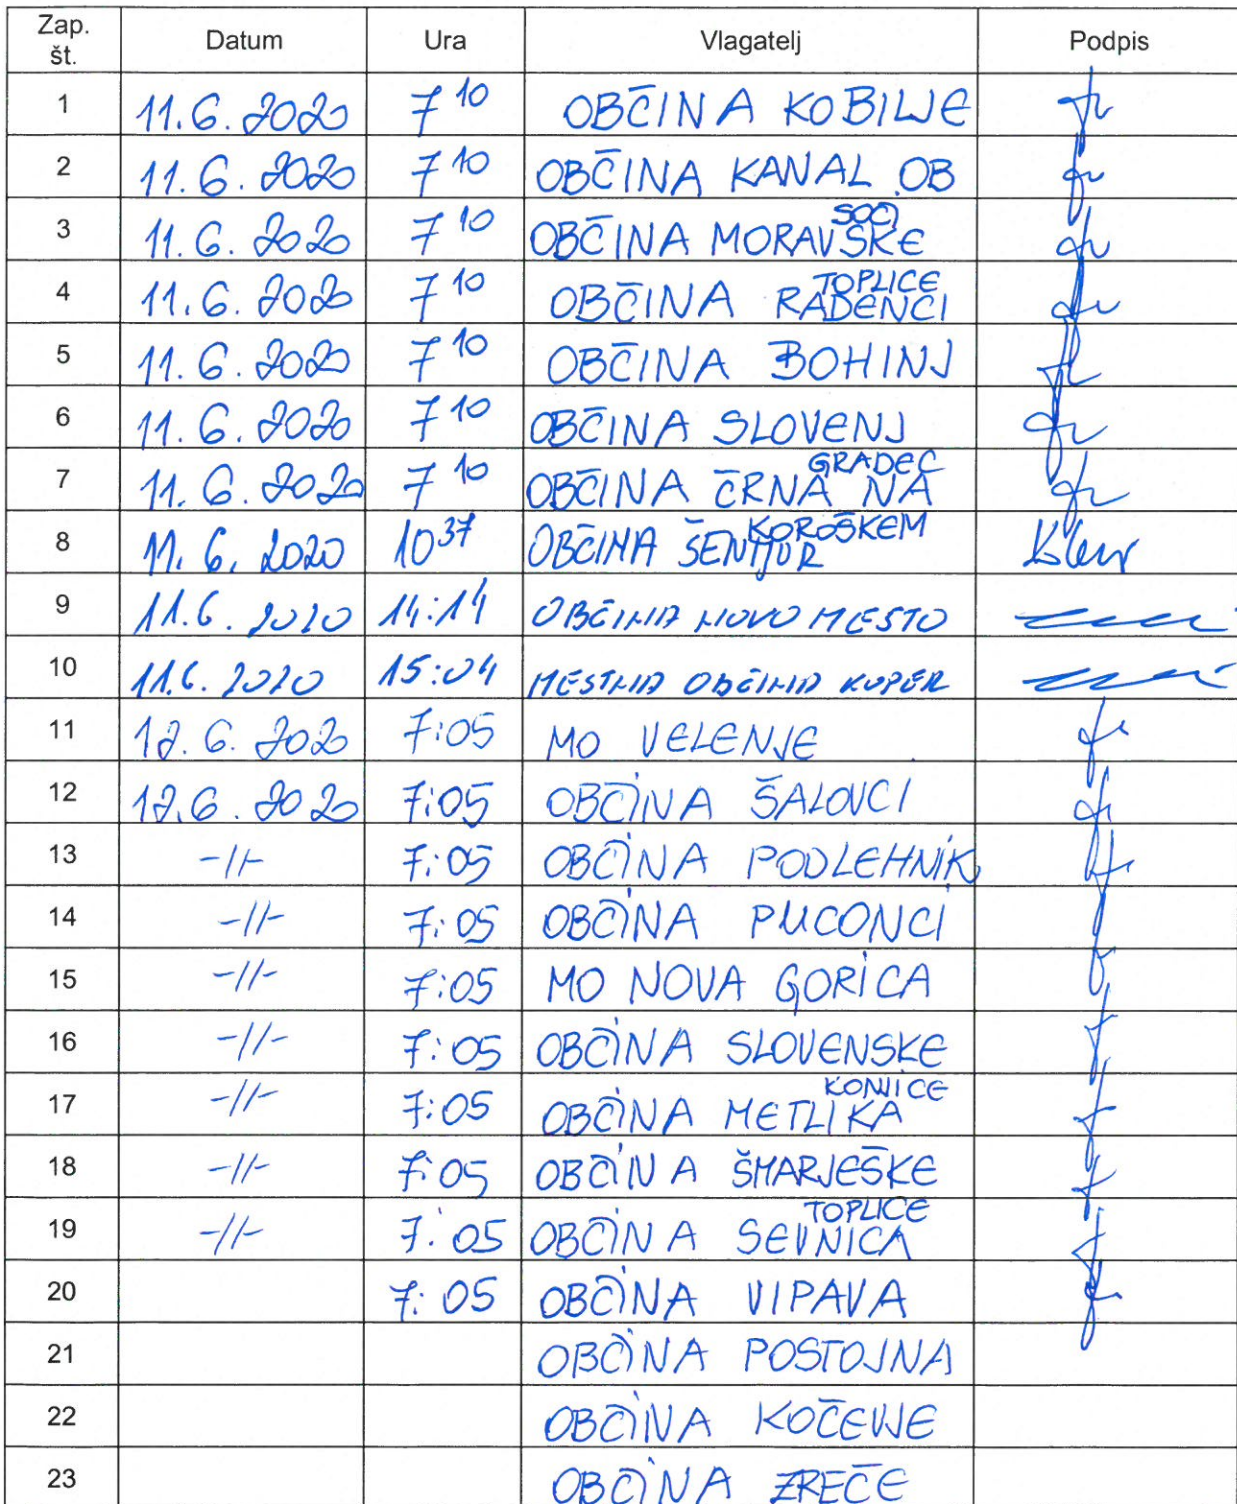 Zap. št. Datum Ura Vlagatelj Podpis
1 11.6.2020 7 10 OBČINA KOBILJE
2 11.6.2020 7 10 OBČINA KANAL OB
SOČI
3 11.6.2020 7 10 OBČINA MORAVSKE
TOPLICE
4 11.6.2020 7 10 OBČINA RADENCI
5 11.6.2020 7 10 OBČINA BOHINJ
6 11.6.2020 7 10 OBČINA SLOVENJ
GRADEC
7 11.6.2020 7 10 OBČINA ČRNA NA
KOROŠKEM
8 11.6.2020 10 37 OBČINA ŠENTJUR
9 11.6.2020 14:14 OBČINA NOVO MESTO
10 11.6.2020 15:04 MESTNA OBČINA KOPER
11 12.6.2020 7:05 MO VELENJE
12 12.6.2020 7:05 OBČINA ŠALOVCI
13 -//- 7:05 OBČINA PODLEHNIK
14 -//- 7:05 OBČINA PUCONCI
15 -//- 7:05 MO NOVA GORICA
16 -//- 7:05 OBČINA SLOVENSKE
KONJICE
17 -//- 7:05 OBČINA METLIKA
18 -//- 7:05 OBČINA ŠMARJEŠKE
TOPLICE
19 -//- 7:05 OBČINA SEVNICA
20 7:05 OBČINA VIPAVA
21 OBČINA POSTOJNA
22 OBČINA KOČEVJE
23 OBČINA ZREČE